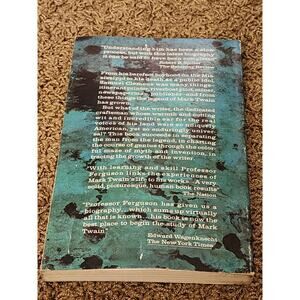 "Understanding him has been a slow
process, but with this latest biography
it can be said to have been completed"
Robert E. Spiller
The Saturday Review
From his barefoot boyhood on the Mis-
sissippi to his death as a public idol,
Samuel Clemens was many things—
itinerant printer, riverboat pilot, miner,
newspaperman, publisher—and from
these things the legend of Mark Twain
has grown.
But what of the writer, the dedicated
craftsman whose warm and cutting
wit and incredible ear for the real
voices of his land were so uniquely
American, yet so enduringly univer-
sal? This book succeeds in separating
the man from the legend, in charting
the course of genius through the color-
ful maze of myth and invention, in
tracing the growth of the writer.
"With learning and skill Professor
Ferguson links the experiences of
Mark Twain's life to his works... A very
solid, picturesque, human book results"
The Nation
"Professor Ferguson has given us a
biography...which sums up virtually
all that is known...his book is now the
best place to begin the study of Mark
Twain"
Edward Wagenknecht
The New York Times